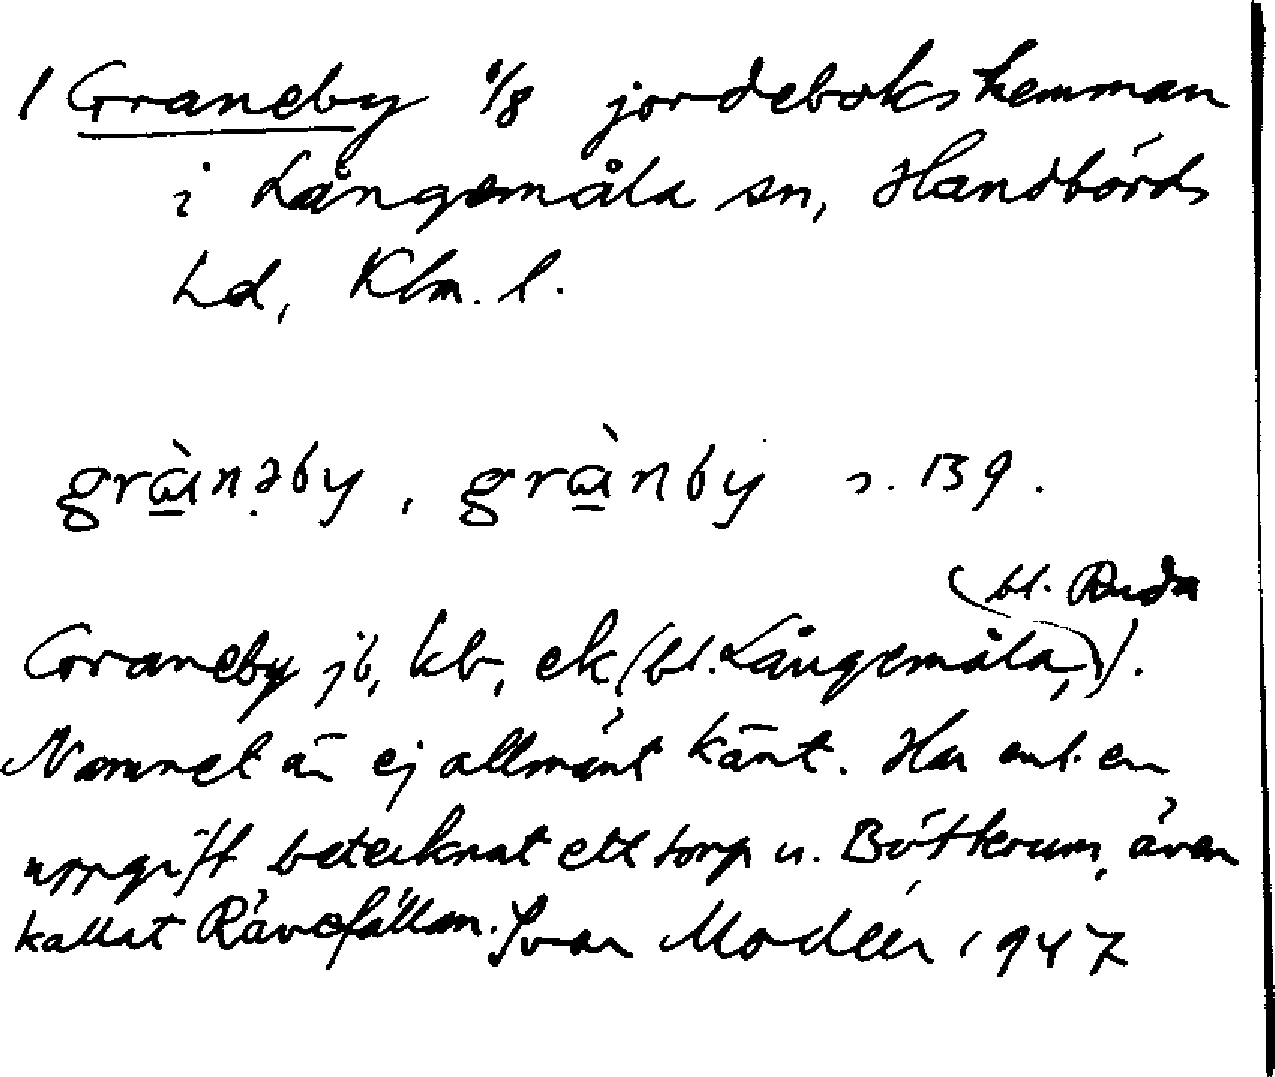 1 Graneby 1/8 jordebokshemman
i Långemåla sn, Handbörds
hd, Klm. l.
grànəby, grànby s. 139.
(bl. Ruda
Graneby jb, kb, ek (bl. Långemåla,)).
Namnet är ej allmänt känt. Har enl. en
uppgift betecknat ett torp u. Bötterum, även
kallat Rävefällan. Ivar Modéer 1947